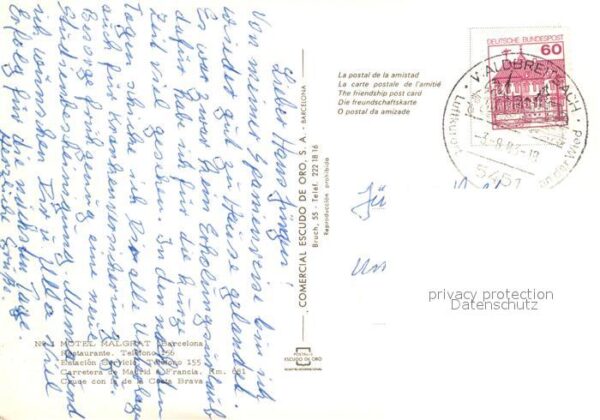 Liebe Hans Jürgen!
Von Spanienreise bin ich
wieder gut zu Hause gelandet.
Es war zwar kein Erholungsurlaub
dafür habe ich für die kurze
Zeit viel gesehen. In den nächsten
Tagen und Dir alle Unterlagen
auch für Krankenversicherung
Besorge für eine neue
Studienbescheinigung. Mama und
ich wünschen Dir u. Ulla viel
Erfolg für die nächsten Tage.
Herzliche Grüße.
No. 1 MOTEL MALGRAT (Barcelona)
Restaurante. Teléfono 156
Estación Servicio. Teléfono 155
Carretera de Madrid a Francia. Km. 681
Cruce con la de la Costa Brava.
COMERCIAL ESCUDO DE ORO, S. A. - BARCELONA
Bruch, 55 - Teléf. 222 18 16
Reproducción prohibida
POSTALES
ESCUDO DE ORO
La postal de la amistad
La carte postale de l'amitié
The friendship post card
Die freundschaftskarte
O postal da amizade
DEUTSCHE BUNDESPOST
60
WALDBREITBACH
Luftkurort
5451
privacy protection
Datenschutz